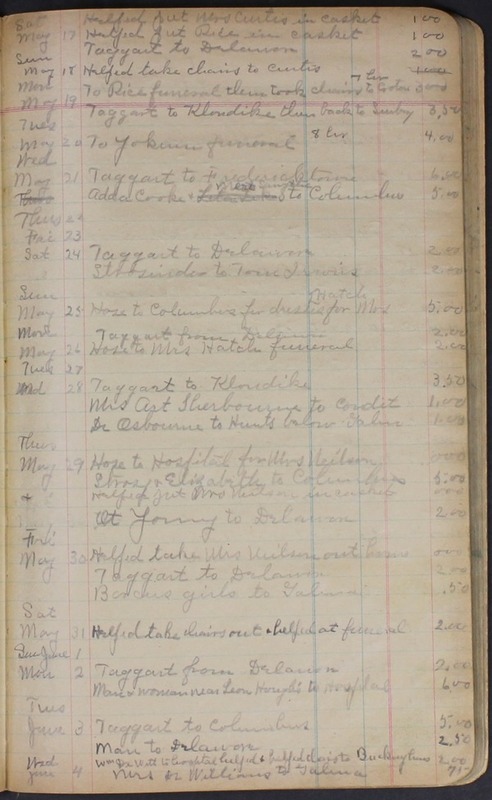 Sat
May 17 Helped put Mrs Curtis in casket 1 00
Helped put Rice in casket 1 00
Sun Taggart to Delawon 2 00
May 18 Helped take chairs to Curtis 1.00
Mon 7 hrs
May 19 To Rice funeral then took chairs to 3 00
Taggart to Klondike then back to Sunby 3.50
Tues 8 hrs
May 20 To Yokum funeral 4.00
Wed
May 21 Taggart to Fredericktown 6.00
Thurs Adda Cooke & to Columbus 5.00
Thurs 22
Fri 23
Sat 24 Taggart to Delawon 2.00
to Tom Lewis 2.00
Sun Hatch
May 25 Hose to Columbus for dresses for Mrs 5.00
Mon Taggart from Delawon 2.00
May 26 Hose to Mrs Hatch funeral 2.00
Tues 27
Wed 28 Taggart to Klondike 3.50
Mrs Art Sherbourne to Condit 1.00
Dr Osbourne to Hunts below Galena 1.00
Thurs
May 29 Hose to Hospital for Mrs Neilson 000
& Elizabeth to Columbus 5.00
& Helped put Mrs Neilson in casket 000
Ot Young to Delawon 2.00
Fri
May 30 Helped take Mrs Neilson out home 000
Taggart to Delawon 2.00
Backus girls to Galena .50
Sat
May 31 Helped take chairs out & helped at funeral 2.00
Sun June 1
Mon 2 Taggart from Delawon 2.00
Man & woman near Leon Hough's to Hospital 6.00
Tues
June 3 Taggart to Columbus 5.00
Man to Delawon 2.50
Wed Wm De Witt to hospital helped & helped to Buckinghams 2.00
June 4 Mrs Dr Williams to Galena 75